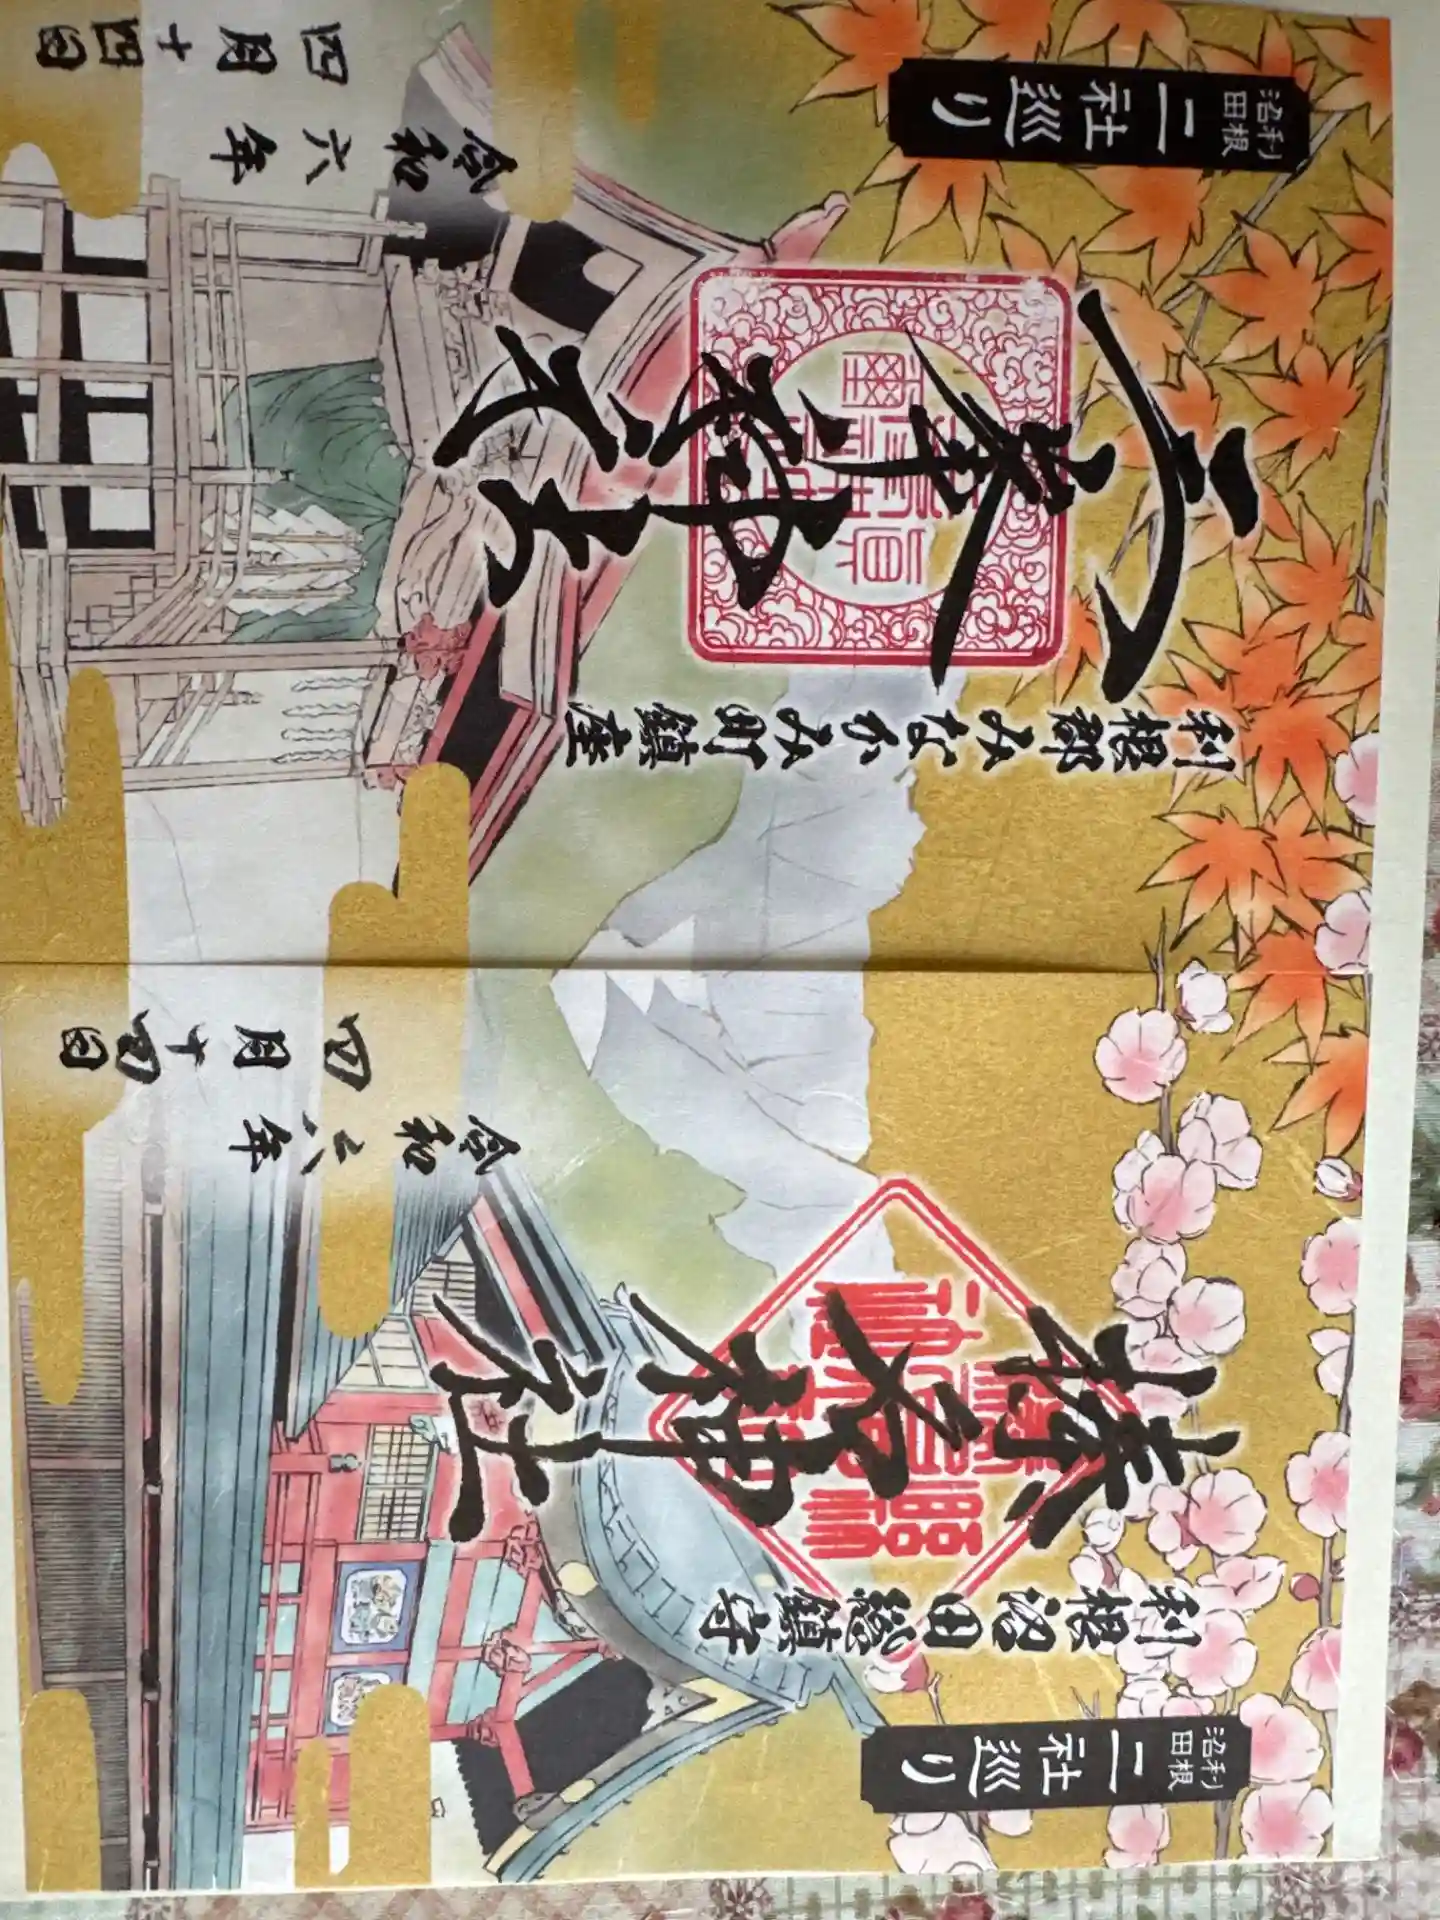 利根
沼田
二社巡り
利根沼田総鎮守
榛名神社
令和六年
四月十四日
利根郡みなかみ町鎮座
三峯神社
令和六年
四月十四日
利根
沼田
二社巡り